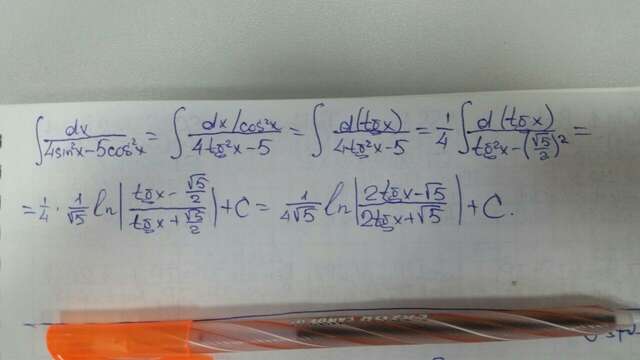 ∫ dx/(4sin²x-5cos²x) = ∫ (dx/cos²x)/(4tgx²x-5) = ∫ d(tgx)/(4tg²x-5) = 1/4 ∫ d(tgx)/(tg²x-(√5/2)²) =
= 1/4 · 1/√5 ln |(tgx - √5/2)/(tgx + √5/2)| + C = 1/(4√5) ln |(2tgx-√5)/(2tgx+√5)| + C.